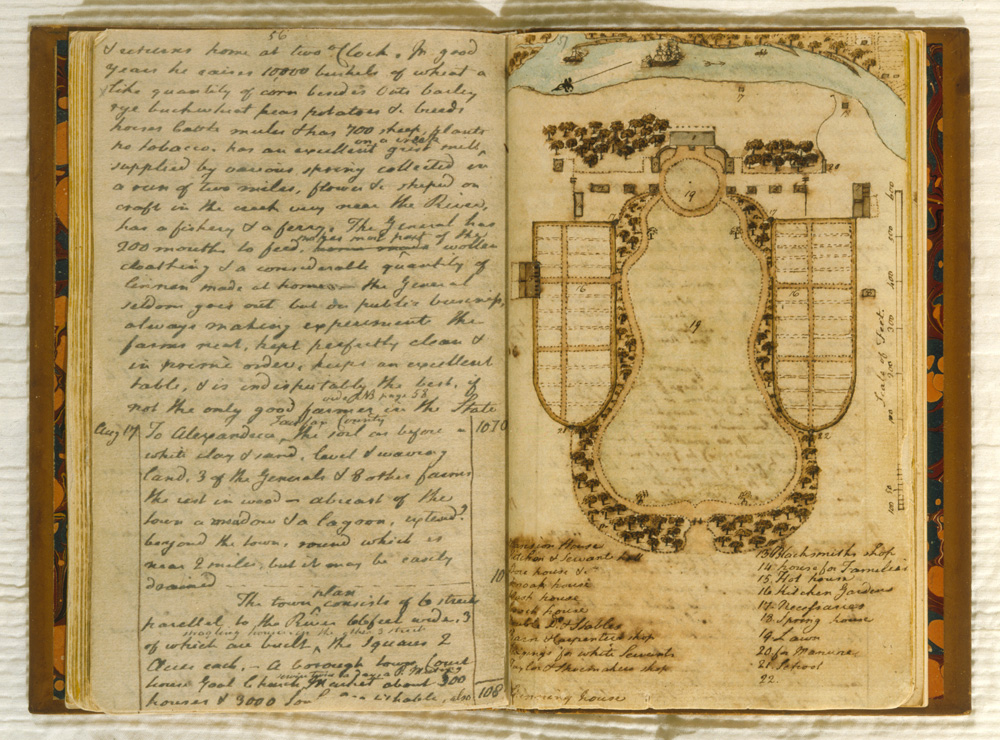 56
& returns home at two o'Clock. In good
years he raises 10000 bushels of wheat a
like quantity of corn besides Oats barley
rye buckwheat peas potatoes & breeds
horses Cattle mules & has 700 sheep, plants
on a creek
no tobacco. has an excellent grist mill,
supplied by various spring collected in
a run of two miles, flower is shiped on
craft in the creek very near the River,
has a fishery & a ferry. The General has
makes most part of the
200 mouths to feed, woollen
cloathing & a considerable quantity of
linnen made at home — the General
seldom goes out but on public business,
always making experiments the
farms neat, kept perfectly clean &
in prime order, keeps an excellent
table, & is indisputably the best, if
vide NB page 58
not the only good farmer in the State
Fairfax County
Aug 17 To Alexandria, the soil as before a 1070
white clay & sand, level & waving
land, 3 of the Generals & 8 other farms
the rest in wood — abreast of the
town a meadow & a lagoon, extend.g
beyond the town, round which is
near 2 miles, but it may be easily
drained
plan
The town consists of 6 streets
parallel, to the River 66 feet wide, 3
of which are built, the Squares 2
Acres each. — A borough town, Court
house Goal Church Market about 300
houses & 3000 inhabitts, also 108
57
7
19
16
16
19
22
Scale of Feet.
600
500
400
300
200
100
50
Mansion House
Kitchen & Servants hall
Store house &c
Smoak house
Wash house
Coach house
Stables
Carpenters shop
for white Servants
Taylor & Shoemakers shop
Spinning house
13 Blacksmiths shop
14 house for Families
15. Hot house
16 Kitchen Gardens
17. Necessaries
18 Spring house
19 Lawn
20 for Manure
21 School
22.